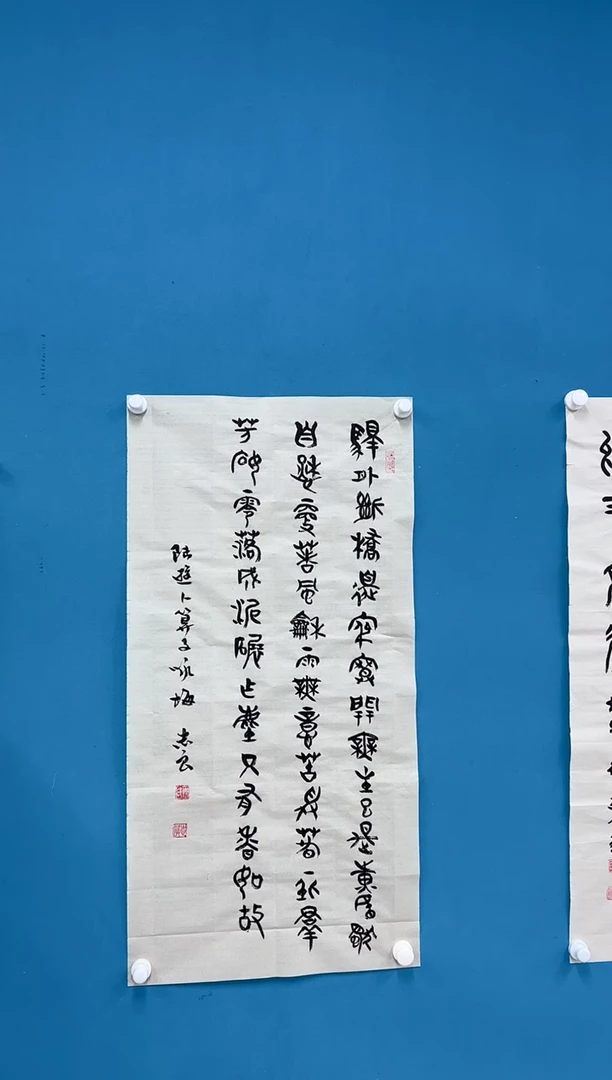 驛外斷橋邊寂寞開無主已是黃昏獨
自愁更著風龢雨無意苦爭春一任群
芳妒零落成泥碾作塵只有香如故
陸遊卜算子咏梅